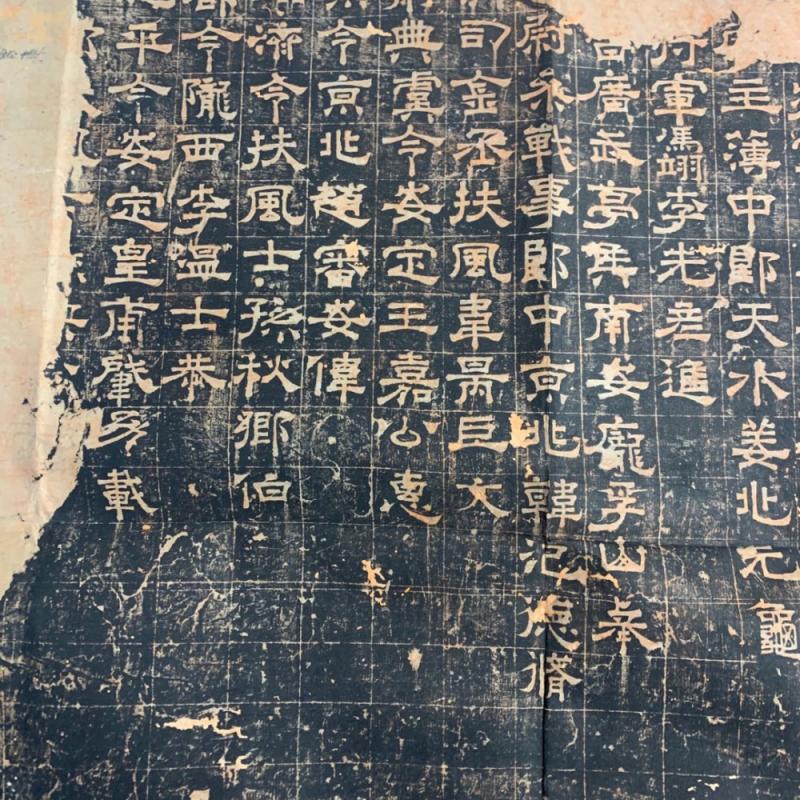 主簿中郎天水姜兆元龜
軍馮翊李先彦進
廣武亭矦南安龐孚山奉
尉參戰事郎中京兆韓氾德脩
司金丞扶風韋昺巨文
典虞令安定王嘉公惠
令京兆趙審安偉
濟令扶風士孫秋鄉伯
令隴西李温士恭
平令安定皇甫肇幼載